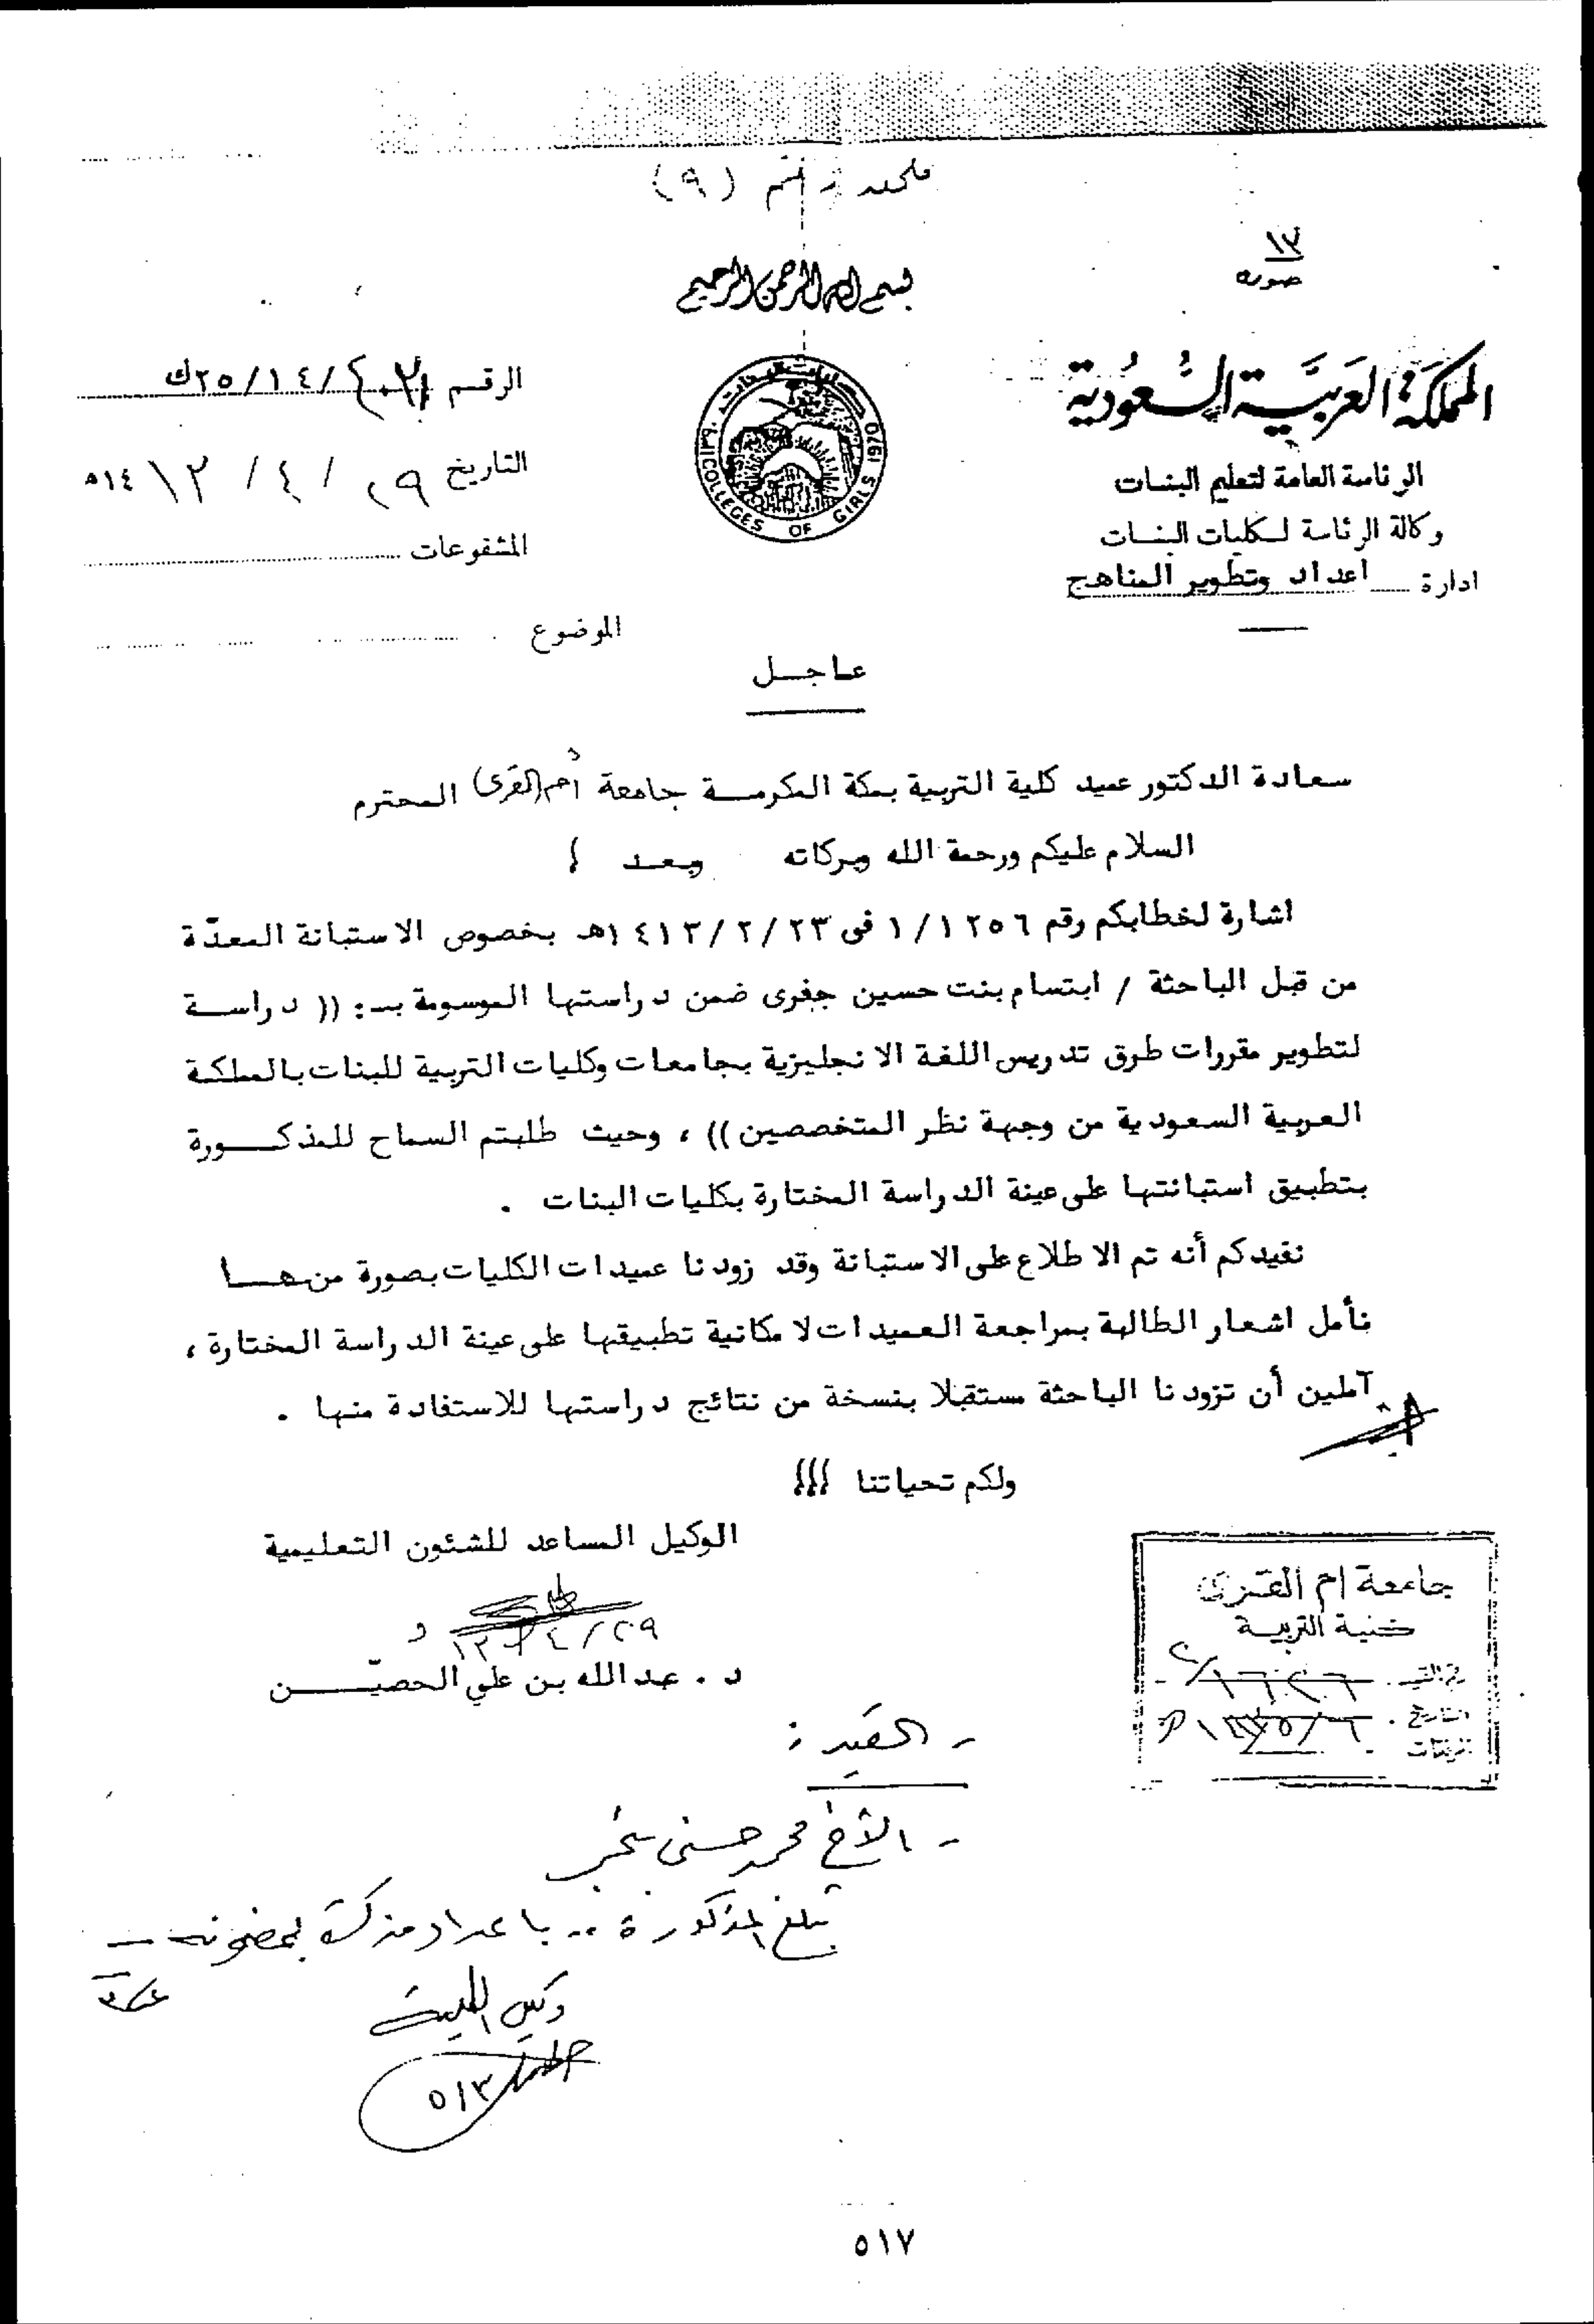 ملحق رقم (٩)
١٧
صورة
بسم الله الرحمن الرحيم
المملكة العربية السعودية
الرئاسة العامة لتعليم البنات
وكالة الرئاسة لكليات البنات
ادارة اعداد وتطوير المناهج
COLLEGES OF GIRLS 1970
الرقم
التاريخ ٢٩ / ٤ / ١٤١٣ه
المشفوعات
الموضوع
عاجل
سعادة الدكتور عميد كلية التربية بمكة المكرمة جامعة أم القرى المحترم
السلام عليكم ورحمة الله وبركاته وبعد
اشارة لخطابكم رقم ١/١٢٥٦ فى ١٤١٣/٢/٢٣هـ بخصوص الاستبانة المعدّة
من قبل الباحثة / ابتسام بنت حسين جفرى ضمن دراستها الموسومة بـ : (( دراسة
لتطوير مقررات طرق تدريس اللغة الانجليزية بجامعات وكليات التربية للبنات بالمملكة
العربية السعودية من وجهة نظر المتخصصين )) ، وحيث طلبتم السماح للمذكورة
بتطبيق استبانتها على عينة الدراسة المختارة بكليات البنات .
نفيدكم أنه تم الاطلاع على الاستبانة وقد زودنا عميدات الكليات بصورة منها
نأمل اشعار الطالبة بمراجعة العميدات لامكانية تطبيقها على عينة الدراسة المختارة ،
آملين أن تزودنا الباحثة مستقبلا بنسخة من نتائج دراستها للاستفادة منها .
ولكم تحياتنا
الوكيل المساعد للشئون التعليمية
٢٩/٤/١٣
د . عبدالله بن علي الحصيّن
جامعة ام القرى
كلية التربية
رقم القيد
التاريخ
المرفقات
- القيد :
- الأخ محمد حسني
تبلغ المذكورة .. باعداد مذكرة بمضمونه
وكيل الكلية
٥/٣
٥١٧